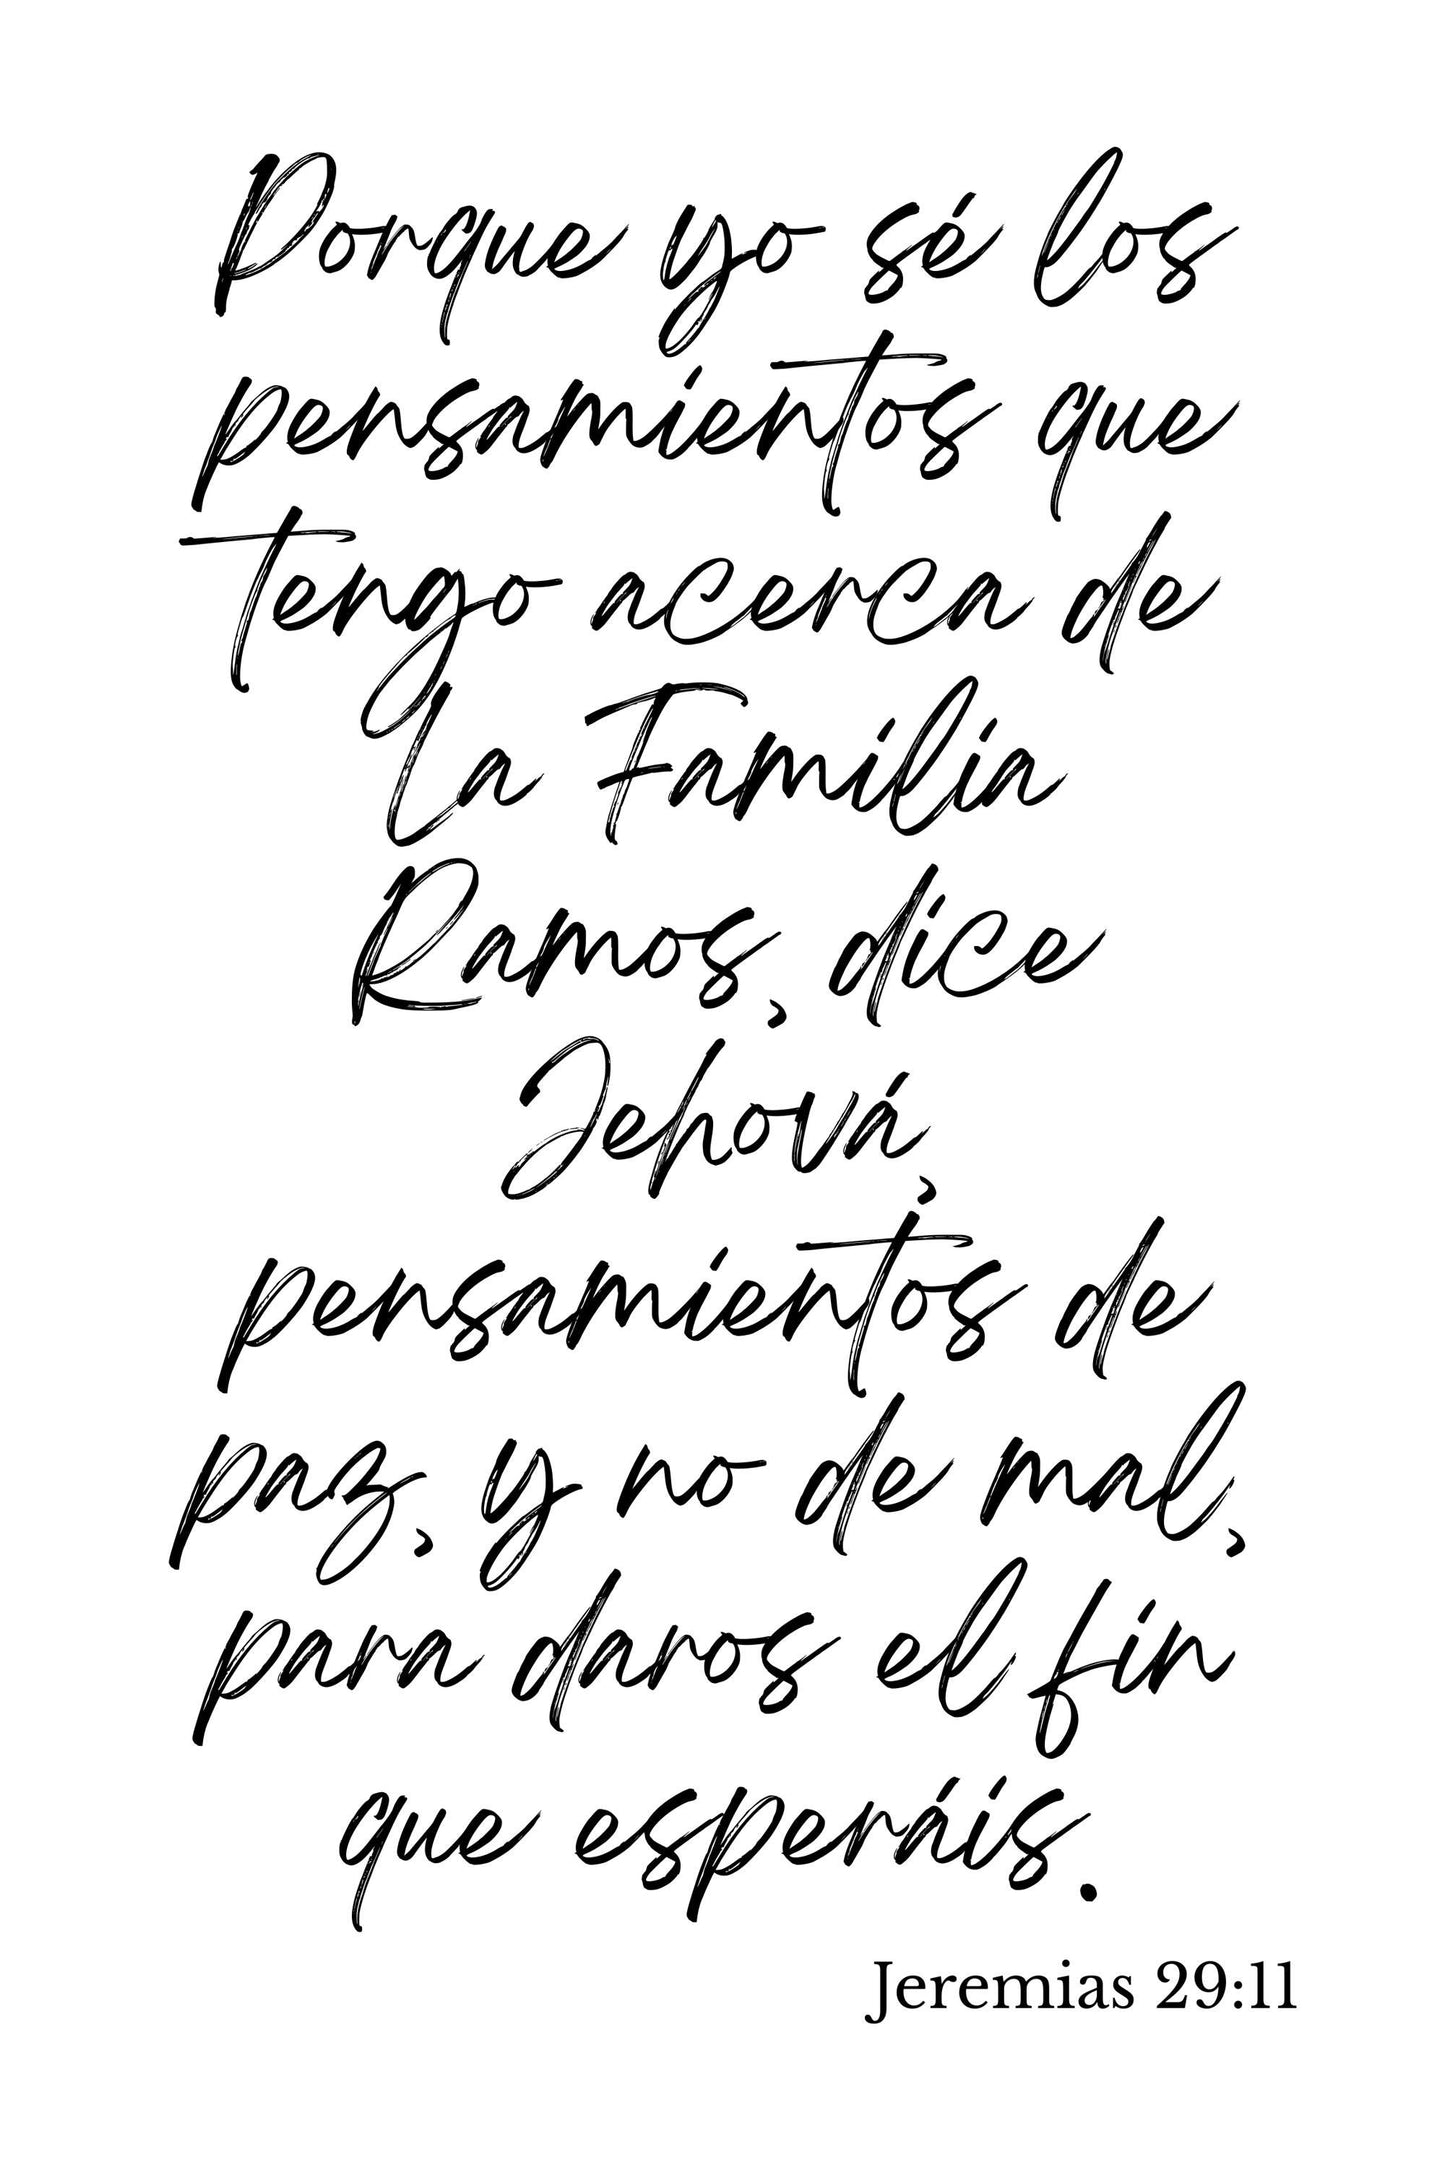 Porque yo sé los
pensamientos que
tengo acerca de
La Familia
Ramos, dice
Jehová,
pensamientos de
paz, y no de mal,
para daros el fin
que esperáis.
Jeremias 29:11